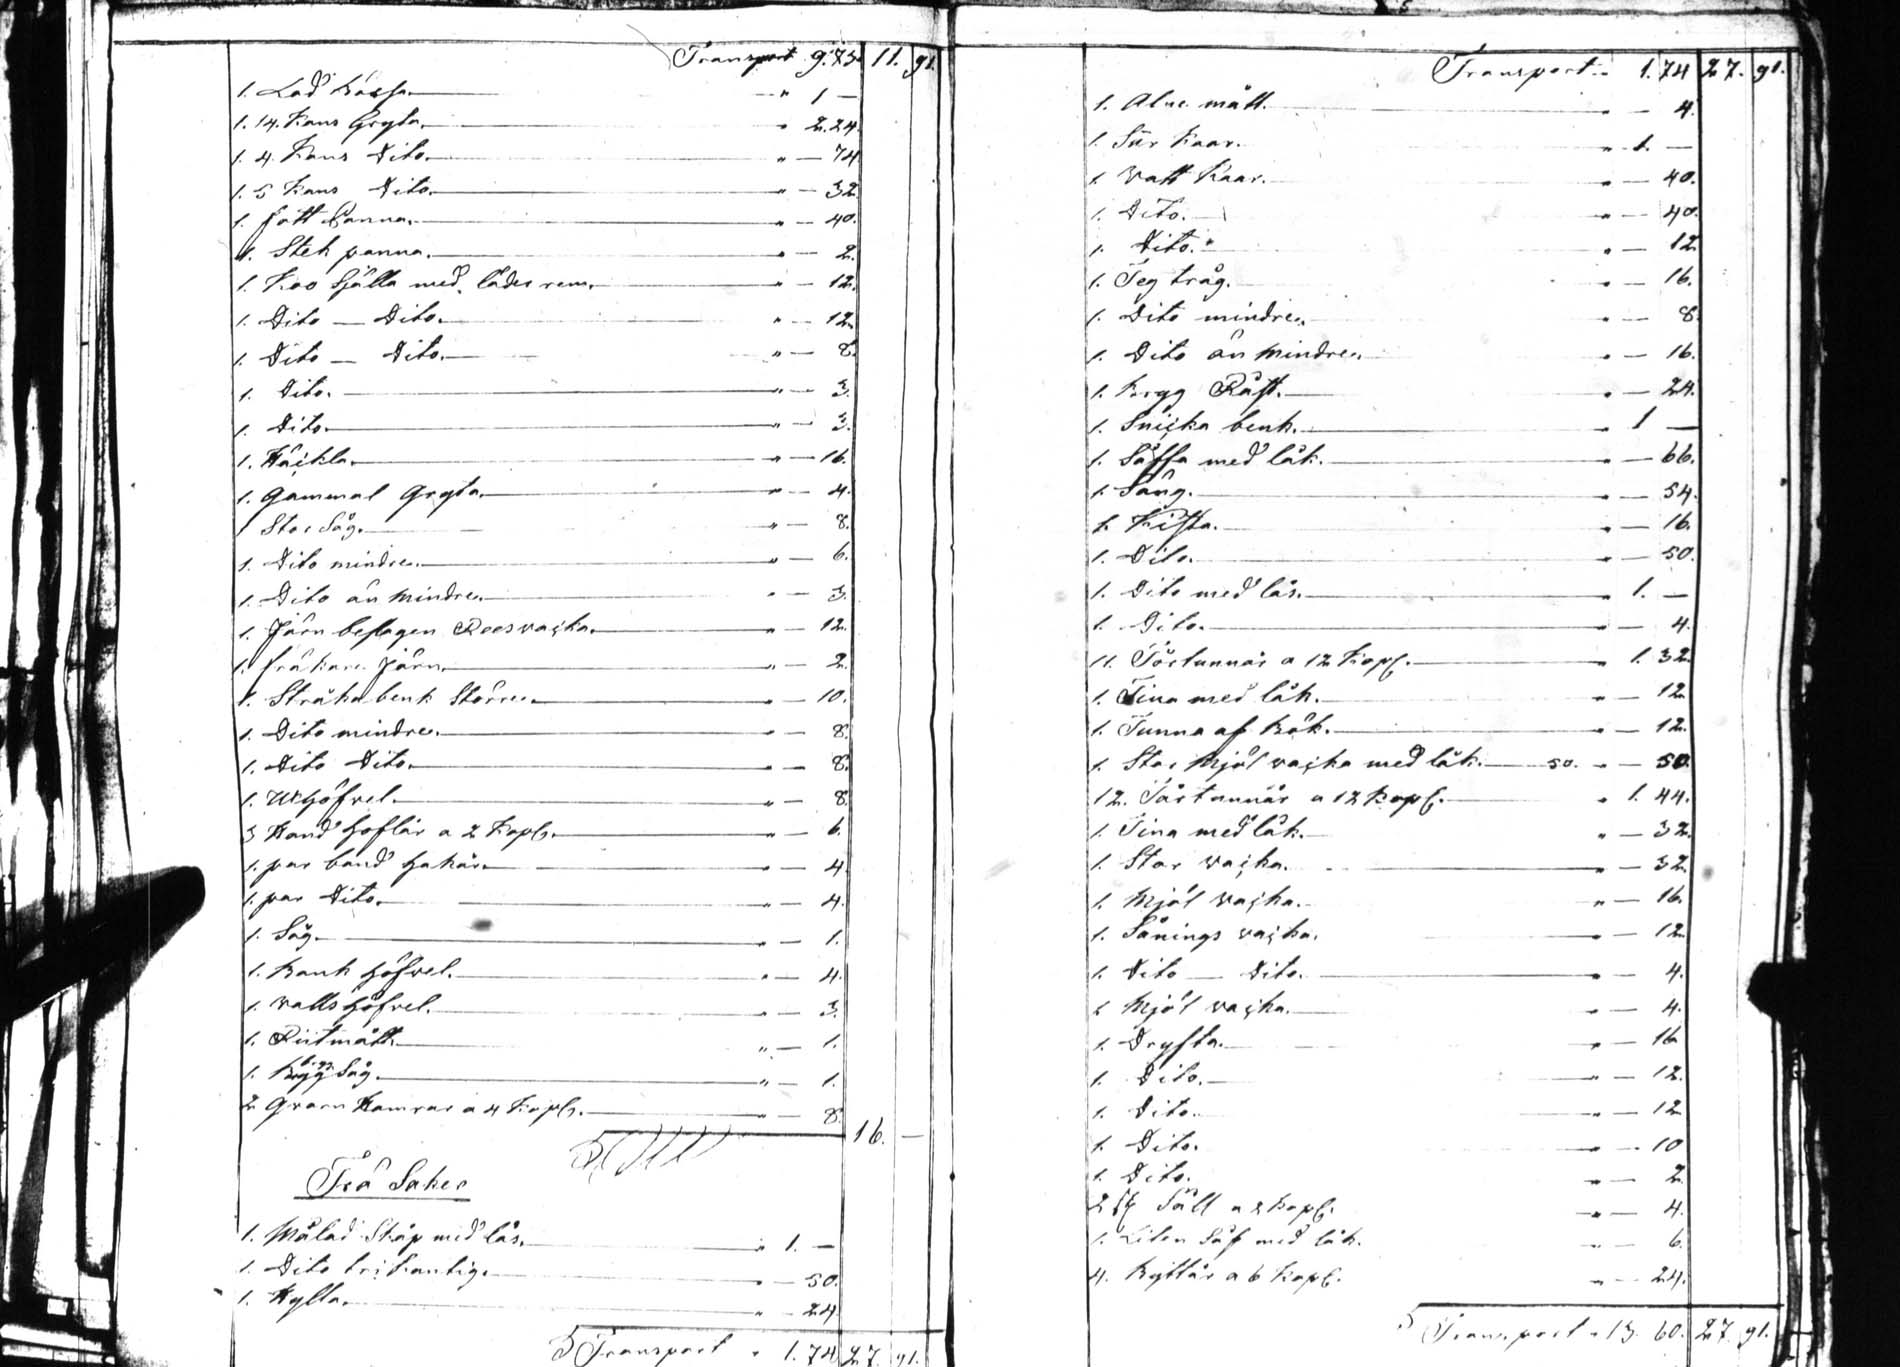 Transport 9.75. 11. 91.
1. Lad kåssa. " 1 —
1. 14. Kans Gryta. " 2.24.
1. 4. Kans Dito. " — 74.
1. 5 Kans Dito. " — 32.
1. fött Panna. " — 40.
1. Stek panna. " — 2.
1. Koo Själla med läder rem. " — 12.
1. Dito — Dito. " — 12.
1. Dito — Dito. " — 8.
1. Dito. " — 3.
1. Dito. " — 3.
1. Häckla. " — 16.
1. Gammal Gryta. " — 4.
1 Stor Såg. " — 8.
1. Dito mindre. " — 6.
1. Dito än Mindre. " — 3.
1. Järn beslagen Reesvacka. " — 12.
1. Järn. " — 2.
1. Stråka benk Större. " — 10.
1. Dito mindre. " — 8.
1. Dito Dito. " — 8.
1. Höfvel. " — 8.
3 Hand Hoflär a 2 Kopl. " — 6.
1. par band Hakär. " — 4.
1. par Dito. " — 4.
1. Såg. " — 1.
1. Bank Höfvel. " — 4.
1. valls Höfvel. " — 3.
1. Ritmått. " — 1.
1. Såg. " — 1.
2 Qvarn Hamrar a 4 Kopl. " — 8.
16. —
Trä Saker
1. Målad Skåp med lås. " 1. —
1. Dito trikantig. " — 50.
1. Hylla. " — 24
Transport " 1. 74 27. 91.
Transport " 1. 74 27. 91.
1. Alne mått. " — 4.
1. Sur Kaar. " 1. —
1. Vatt Kaar. " — 40.
1. Dito. " — 40.
1. Dito. " — 12
1. Teg tråg. " — 16.
1. Dito mindre. " — 8.
1. Dito än Mindre. " — 16.
1. Brygg Råst. " — 24.
1. Snicka benk. " 1 —
1. Såffa med låk. " — 66.
1. Säng. " — 54.
1. Kista. " — 16.
1. Dito. " — 50.
1. Dito med lås. " 1. —
1. Dito. " — 4.
11. Törtunnär a 12 Kopl. " 1. 32.
1. Tina med låk. " — 12
1. Tunna af Bök. " — 12.
1. Stor Mjöl vacka med låk. 50. " — 50.
12. Törtunnär a 12 Kopl. " 1. 44.
1. Tina med låk. " — 32.
1. Stor vacka. " — 32.
1. Mjöl vacka. " — 16.
1. Sånings vacka. " — 12.
1. Dito — Dito. " — 4.
1 Mjöl vacka. " — 4.
1. Dryfta. " — 16
1. Dito. " — 12.
1. Dito. " — 12
1. Dito. " — 10
1. Dito. " — 2
2 st Såll a 2 Kopl. " — 4.
1. Liten Såf med låk. " — 6.
4. Byttär a 6 Kopl. " — 24.
Transport " 13. 60. 27. 91.